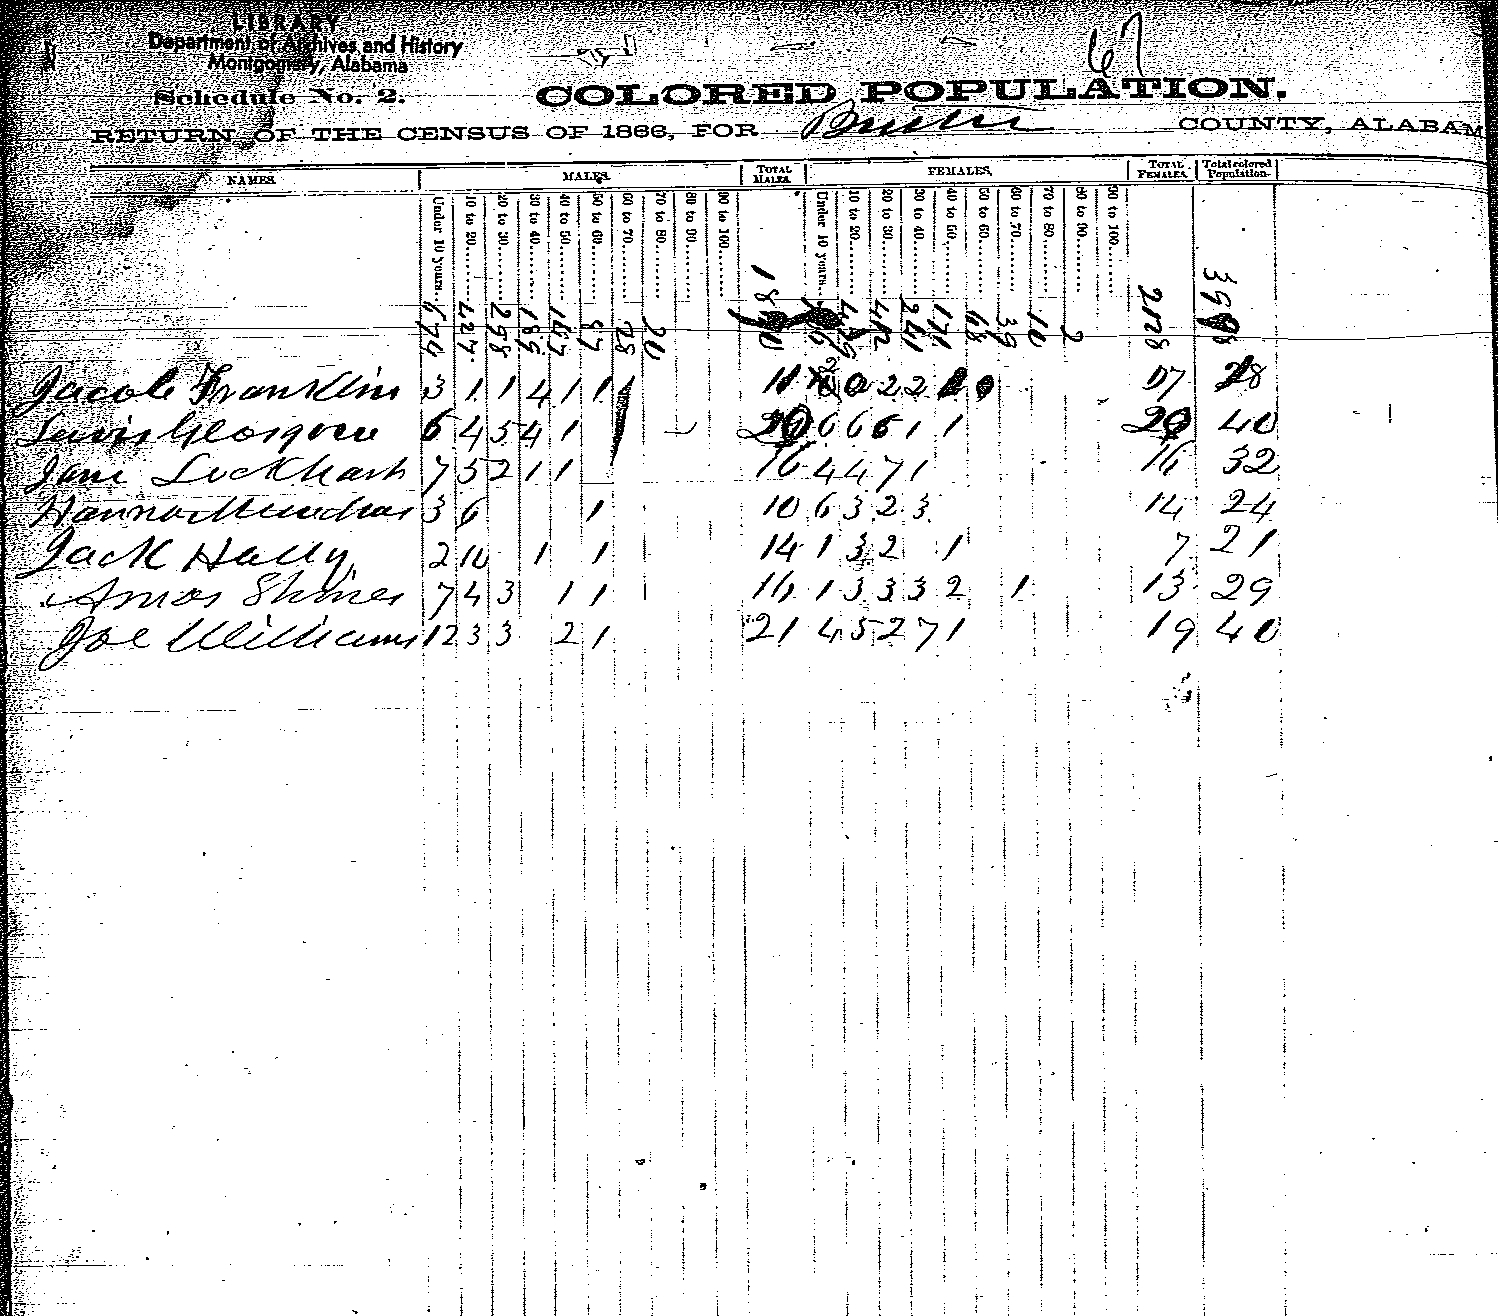 67
LIBRARY
Department of Archives and History
Montgomery, Alabama
Schedule No. 2.
COLORED POPULATION.
RETURN OF THE CENSUS OF 1866, FOR Butler COUNTY, ALABAM
NAMES. MALES. TOTAL MALES. FEMALES. TOTAL FEMALES. Total colored Population.
Under 10 years. 10 to 20. 20 to 30. 30 to 40. 40 to 50. 50 to 60. 60 to 70. 70 to 80. 80 to 90. 90 to 100. Under 10 years. 10 to 20. 20 to 30. 30 to 40. 40 to 50. 50 to 60. 60 to 70. 70 to 80. 80 to 90. 90 to 100.
674 427 298 20 171 68 39 10 2 2128
Jacob Franklin 3 1 1 4 1 1 11 2 2 17 28
Lewis 6 4 5 4 1 20 6 6 6 1 1 20 40
Jane Lockhart 7 5 2 1 1 16 4 4 7 1 16 32
Hanna 3 6 1 10 6 3 2 3 14 24
Jack Hally 2 10 1 1 14 1 3 2 1 7 21
Amos Shines 7 4 3 1 1 16 1 3 3 3 2 1 13 29
Joe Williams 12 3 3 2 1 21 4 5 2 7 1 19 40